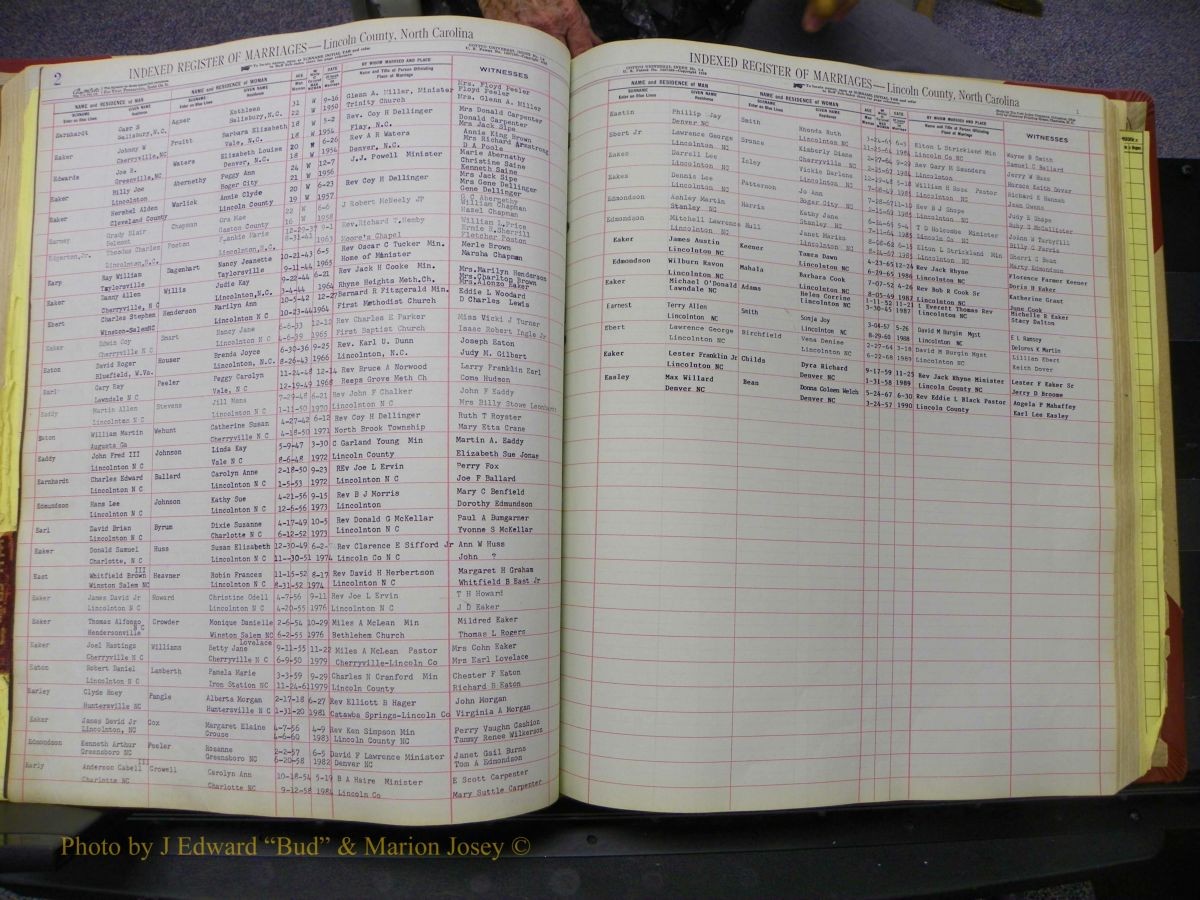 2
INDEXED REGISTER OF MARRIAGES—Lincoln County, North Carolina
NAME and RESIDENCE of MAN NAME and RESIDENCE of WOMAN BY WHOM MARRIED AND PLACE WITNESSES
Earnhardt Carr S Agner Kathleen 31 W 9-16 Glenn A. Miller, Minister Mrs. Floyd Peeler
Salisbury, N.C. Salisbury, N.C. 22 W 1950 Trinity Church Floyd Peeler
Mrs. Glenn A. Miller
Eaker Johnny W Pruitt Barbara Elizabeth 18 W 5-2 Rev. Coy H Dellinger Mrs Donald Carpenter
Cherryville, NC Vale, N.C. 18 W 1954 Flay, N.C. Donald Carpenter
Mrs Jack Sipe
Edwards Joe R. Waters Elizabeth Louise 20 W 6-26 Rev A H Waters Annie King Brown
Greenville, NC Denver, N.C. 18 W 1954 Denver, N.C. Mrs Richard Armstrong
D A Poole
Eaker Billy Joe Abernethy Peggy Ann 24 W 12-7 J.J. Powell Minister Marie Abernathy
Boger City 21 W 1956 Christine Saine
Kenneth Saine
Eaker Hershel Alden Warlick Annie Clyde 20 W 6-23 Rev Coy H Dellinger Mrs Jack Sipe
Cleveland County Lincoln County 19 W 1957 Mrs Gene Dellinger
Gene Dellinger
Earney Grady Blair Chapman Ora Mae 22 W 6-6 J Robert McNeely JP
Belmont Gaston County 16 W 1958 William Chapman
Hazel Chapman
Edgerton, Jr. Theodore Charles Poston Frankie Marie 12-20-37 9-1 Rev. Richard T. Hemby William L. Price
Lincolnton, N.C. Lincolnton, N.C. 8-31-41 1963 Moore's Chapel Ernie R. Sherrill
Fletcher Poston
Earp Ray William Sagenhart Nancy Jeanette 10-21-43 6-5 Rev Oscar C Tucker Min. Merle Brown
Taylorsville 9-11-44 1965 Home of Minister Marsha Chapman
Eaker Danny Allen Willis Judie Kay 9-22-44 6-21 Rev Jack H Cooke Min. Mrs. Marilyn Henderson
Cherryville, N C Lincolnton, N.C. 3-4-44 1964 Rhyne Heights Meth. Ch. Mrs. Charlton Brown
Mrs. Alonzo Eaker
Ebert Charles Stephen Henderson Marilyn Ann 10-5-42 12-27 Bernard R Fitzgerald Min. Eddie L Woodard
Winston-Salem NC Lincolnton N C 10-23-44 1964 First Methodist Church D Charles Lewis
Eaker Edwin Coy Smart Nancy Jane 8-6-33 12-12 Rev Charles E Parker Miss Vicki J Turner
Cherryville N C Lincolnton N C 4-6-39 1965 First Baptist Church Isaac Robert Ingle Jr
Eaton David Roger Houser Brenda Joyce 6-30-36 9-25 Rev. Karl U. Dunn Joseph Eaton
Bluefield, W.Va. Lincolnton, N.C. 8-26-43 1966 Lincolnton, N.C. Judy M. Gilbert
Earl Gary Ray Peeler Peggy Carolyn 11-24-48 12-14 Rev Bruce A Norwood Larry Franklin Earl
Lawndale N C Vale, N C 12-19-49 1968 Reeps Grove Meth Ch Coma Hudson
Eaddy Martin Allen Stevens Jill Mana 7-29-48 6-21 Rev John F Chalker John F Eaddy
Lincolnton N C Lincolnton N C 1-11-50 1970 Lincolnton N C Mrs Billy Stowe Leonhardt
Eaton William Martin Wehunt Catherine Susan 4-27-42 6-12 Rev Coy H Dellinger Ruth T Royster
Augusta Ga Cherryville N C 4-18-50 1971 North Brook Township Mary Etta Crane
Eaddy John Fred III Johnson Linda Kay 5-9-47 3-30 C Garland Young Min Martin A. Eaddy
Lincolnton N C Vale N C 8-6-48 1972 Lincoln County Elizabeth Sue Jonas
Earnhardt Charles Edward Ballard Carolyn Anne 2-18-50 9-23 REv Joe L Ervin Perry Fox
Lincolnton N C Lincolnton N C 1-5-53 1972 Lincolnton N C Joe F Ballard
Edmundson Hans Lee Johnson Kathy Sue 4-21-56 9-15 Rev B J Morris Mary C Benfield
Lincolnton N C Lincolnton N C 12-6-56 1973 Lincolnton Dorothy Edmundson
Earl David Brian Byrum Dixie Suzanne 4-17-49 10-5 Rev Donald G McKellar Paul A Bumgarner
Lincolnton N C Charlotte N C 6-12-52 1973 Lincolnton N C Yvonne S McKellar
Eaker Donald Samuel Huss Susan Elizabeth 12-30-49 6-2- Rev Clarence E Sifford Jr Ann W Huss
Charlotte, N C Lincolnton N C 11--30-51 1974 Lincoln Co N C John ?
East Whitfield Brown III Heavner Robin Frances 11-15-52 8-17 Rev David H Herbertson Margaret H Graham
Winston Salem NC Lincolnton N C 8-31-52 1974 Lincolnton N C Whitfield B East Jr
Eaker James David Jr Howard Christine Odell 4-7-56 9-11 Rev Joe L Ervin T H Howard
Lincolnton N C Lincolnton N C 4-20-55 1976 Lincolnton N C J D Eaker
Eaker Thomas Alfonso Crowder Monique Danielle 2-6-54 10-29 Miles A McLean Min Mildred Eaker
Hendersonville N C Winston Salem NC 6-2-55 1976 Bethlehem Church Thomas L Rogers
Eaker Joel Hastings Williams Betty Jane Lovelace 9-11-55 11-22 Miles A McLean Pastor Mrs Cohn Eaker
Cherryville N C Cherryville N C 6-9-50 1979 Cherryville-Lincoln Co Mrs Earl Lovelace
Eaton Robert Daniel Lamberth Pamela Marie 3-3-59 9-29 Charles N Cranford Min Chester F Eaton
Lincolnton N C Iron Station NC 11-24-61 1979 Lincoln County Richard B Eaton
Earley Clyde Hoey Pangle Alberta Morgan 2-17-18 6-27 Rev Elliott B Hager John Morgan
Huntersville NC Huntersville N C 1-31-20 1981 Catawba Springs-Lincoln Co Virginia A Morgan
Eaker James David Jr Cox Margaret Elaine 4-7-56 4-9 Rev Ken Simpson Min Perry Vaughn Cashion
Lincolnton, NC Crouse 4-6-60 1983 Lincoln County NC Tammy Renee Wilkerson
Edmundson Kenneth Arthur Peeler Rosanne 2-2-57 6-5 David F Lawrence Minister Janet Gail Burns
Greensboro NC Greensboro NC 6-20-58 1982 Denver NC Tom A Edmondson
Early Anderson Cabell III Crowell Carolyn Ann 10-18-54 5-19 B A Haire Minister E Scott Carpenter
Charlotte NC Charlotte NC 9-12-58 1984 Lincoln Co Mary Suttle Carpenter
INDEXED REGISTER OF MARRIAGES—Lincoln County, North Carolina
NAME and RESIDENCE of MAN NAME and RESIDENCE of WOMAN BY WHOM MARRIED AND PLACE WITNESSES
Eastin Phillip Jay Smith Rhonda Ruth Elton L Strickland Min Wayne B Smith
Denver NC Lincoln Co NC Samuel C Ballard
Ebert Jr Lawrence George Bronce Kimberly Diane Rev Gary H Saunders Jerry W Huss
Lincolnton NC Cherryville NC Lincolnton Horace Keith Dover
Eakes Darrell Lee Isley Vickie Darlene William H Rose Pastor Richard E Hannah
Lincolnton NC Lincolnton NC Lincolnton NC Jean Owens
Eakes Dennis Lee Patterson Jo Ann Rev H J Shope Judy E Shope
Lincolnton NC Boger City NC Lincolnton NC Ruby S McCallister
Edmondson Ashley Martin Harris Kathy Jane T D Holcombe Minister John W Tarpyfill
Stanley NC Stanley NC Lincoln Co NC Billy C Zargia
Edmondson Mitchell Lawrence Hull Janet Marise Elton Strickland Min Sherri C Bean
Lincolnton NC Lincolnton NC Lincolnton NC Marty Edmondson
Eaker James Austin Keener Tamra Dawn 4-23-65 12-24 Rev Jack Rhyne Florence Farmer Keener
Lincolnton NC Lincolnton NC 6-29-65 1986 Lincolnton NC Doris H Eaker
Edmondson Wilburn Ravon Mahala Barbara Cook 7-07-52 4-26 Rev Bob R Cook Sr Katherine Grant
Lincolnton NC Lincolnton NC 8-05-49 1987 Lincolnton NC June Cook
Eaker Michael O'Donald Adams Helen Corrine 1-11-52 11-21 L Everett Thomas Rev Michelle R Eaker
Lawndale NC Lincolnton NC 3-30-65 1987 Lincolnton NC Stacy Dalton
Earnest Terry Allen Smith Sonja Joy 3-04-57 5-26 David M Burgin Mgst E L Ramsey
Lincolnton NC Lincolnton NC 8-29-60 1988 Lincolnton NC Delores K Martin
Ebert Lawrence George Birchfield Vena Denise 2-27-64 3-18 David M Burgin Mgst Lillian Ebert
Lincolnton NC Lincolnton NC 6-22-68 1989 Lincolnton NC Keith Dover
Eaker Lester Franklin Jr Childs Dyra Richard 9-17-59 11-25 Rev Jack Rhyne Minister Lester F Eaker Sr
Lincolnton NC Denver NC 1-31-58 1989 Lincoln County NC Jerry D Broome
Easley Max Willard Bean Donna Coleen Welch 5-24-67 6-30 Rev Eddie L Black Pastor Angela P Mahaffey
Denver NC Denver NC 3-24-57 1990 Lincoln County Earl Lee Easley
Photo by J Edward “Bud” & Marion Josey ©